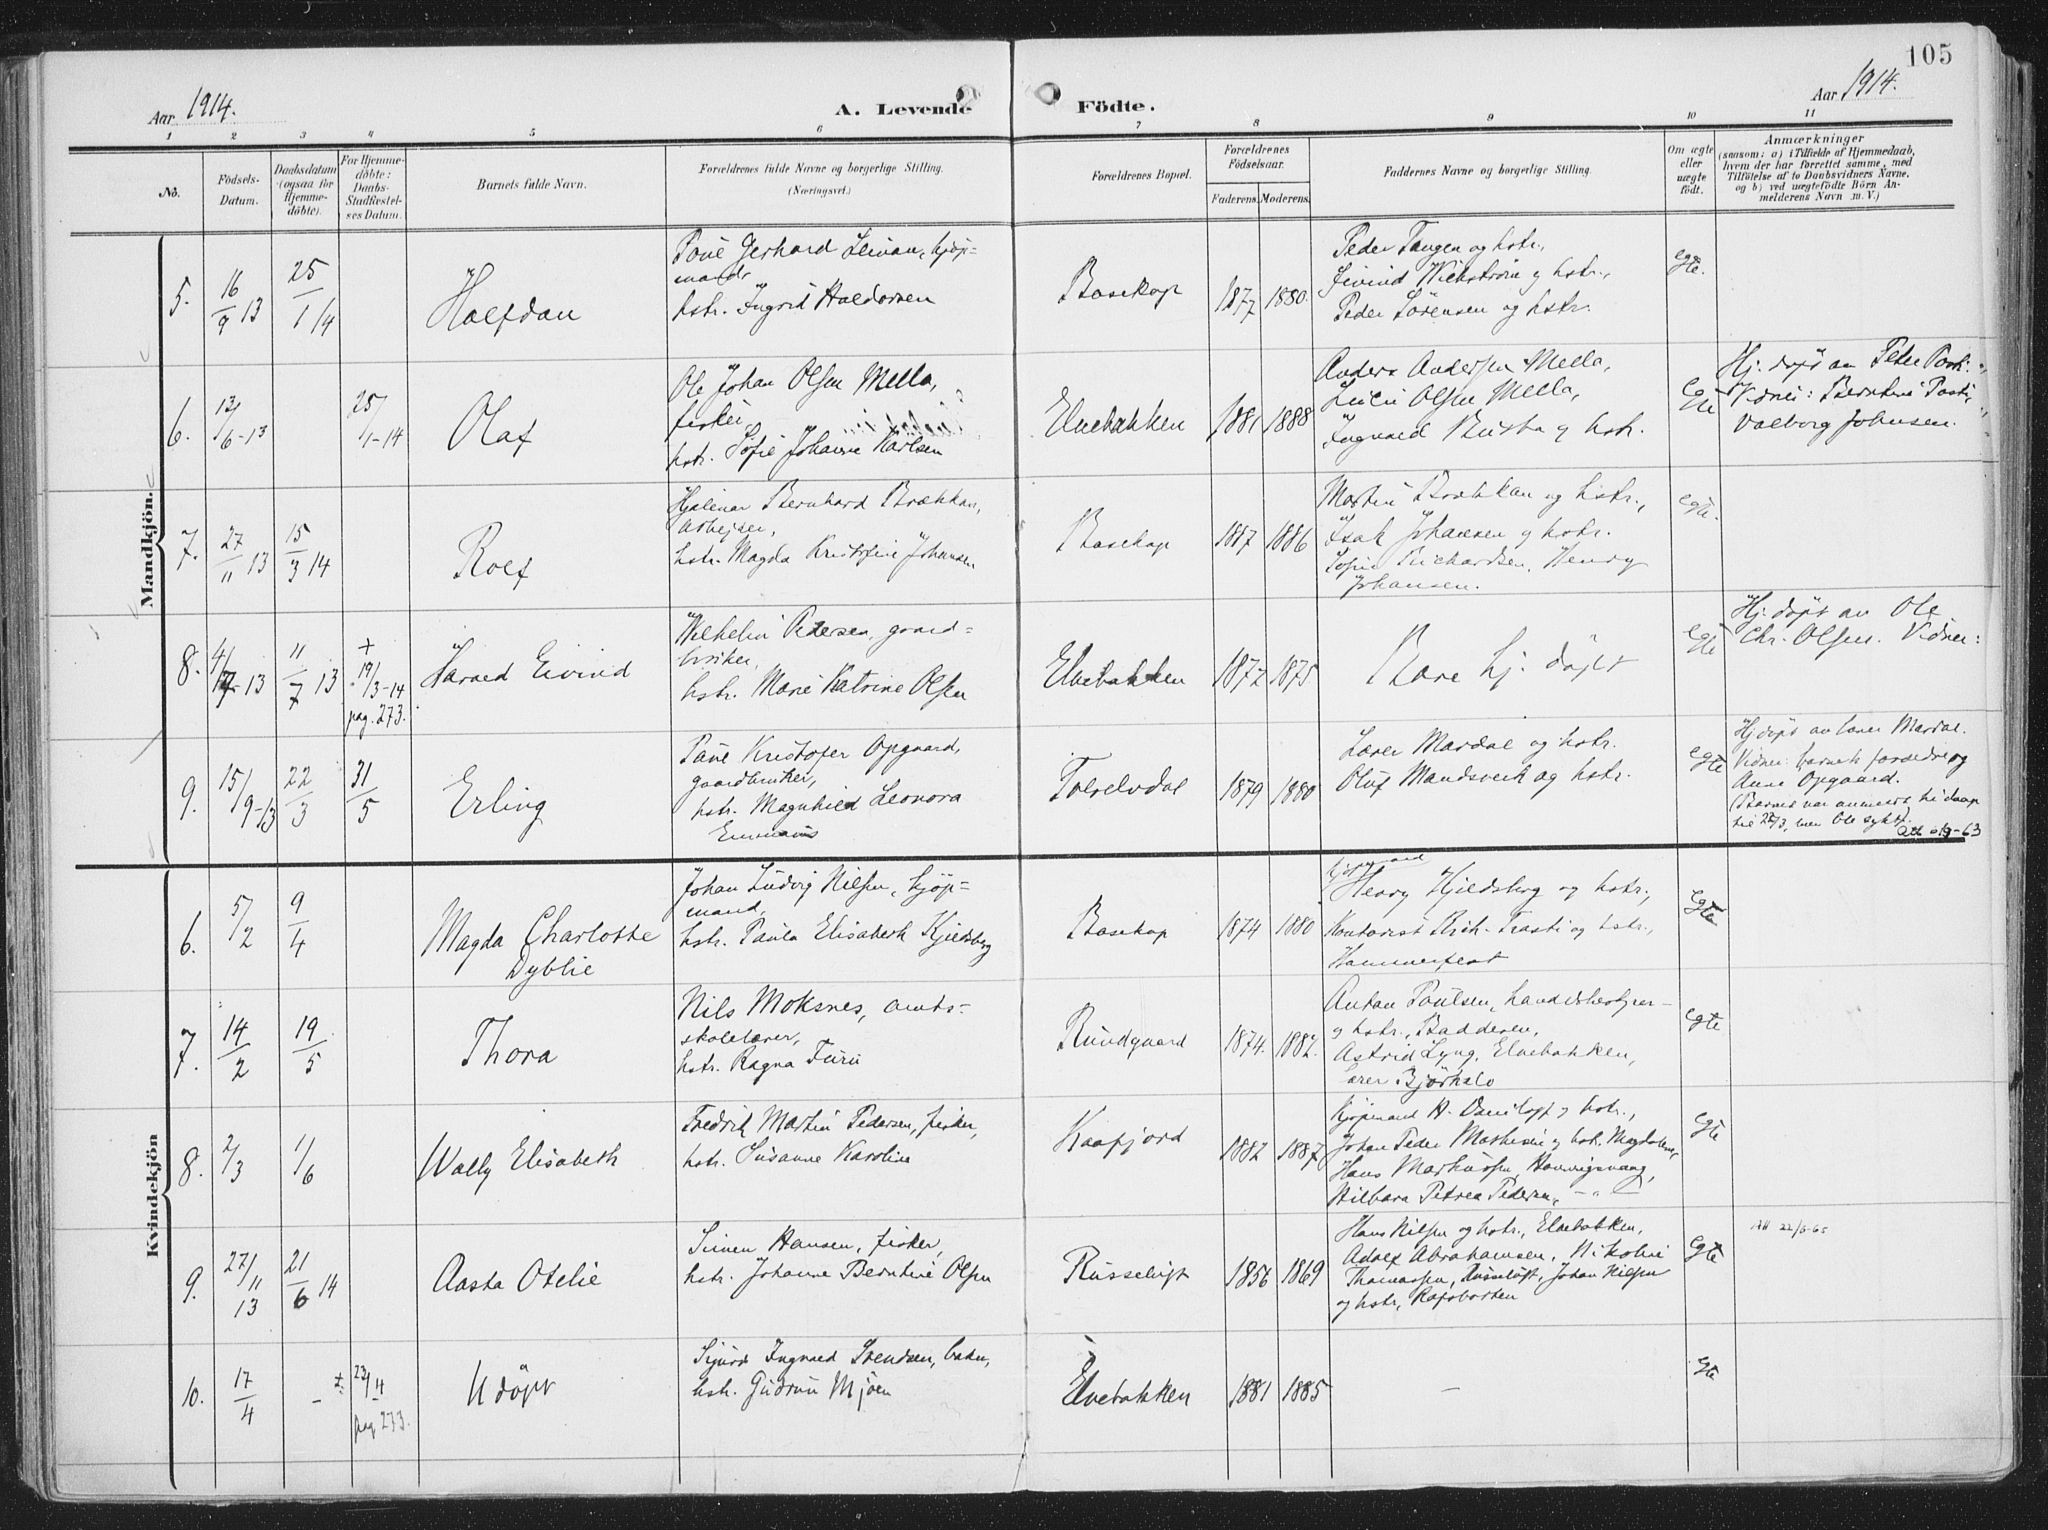 105
Aar 1914.
A. Levende Födte.
Aar 1914.
1 2 3 4 5 6 7 8 9 10 11
No.
Födsels-
Datum.
Daabsdatum
(ogsaa for
Hjemme-
döbte).
For Hjemme-
döbte:
Daabs-
Stadfæstel-
ses Datum.
Barnets fulde Navn.
Forældrenes fulde Navne og borgerlige Stilling.
(Næringsvei.)
Forældrenes Bopæl.
Forældrenes
Födselsaar.
Faderens. Moderens.
Faddernes Navne og borgerlige Stilling.
Om ægte
eller
uægte
födt.
Anmærkninger
(saasom: a) i Tilfælde af Hjemmedaab,
hvem der har forrettet samme, med
Tilföielse af to Daabsvidners Navne,
og b) ved uægtefödte Börn An-
melderens Navn m. V.)
Mandkjön.
5.
16/9 13
25/1 14
Halfdan
Gerhard
hstr. Ingrid Haldorsen
Bosekop
1877 1880.
Peder Tangen og hstr.,
Eivind Wickström og hstr.,
Peder Sörensen og hstr.
egte.
6.
13/6-13
25/1-14
Olaf
Ole Johan Olsen Mella,
fisker,
hstr. Sofie Johanne Karlsen
Elvebakken
1881 1888
Anders Andersen Mella,
Olsen Mella,
Ingvald Busta og hstr.
egte
Hj. döpt av Peter
Vidner: Berntine
Valborg Johnsen.
7.
27/11 13
15/3 14
Rolf
Hjalmar Bernhard Brækkan,
arbeider,
hstr. Magda Kristofine Johansen
Bosekop
1887 1886
Martin Brækkan og hstr.,
Isak Johansen og hstr.
Sofie Richardsen, Henry
Johansen.
egte.
8.
4/7-13
11/7 13
+
19/3-14
pag. 273.
Harald Eivind
Wilhelm Pedersen, gaard-
bruker,
hstr. Marie Katrine Olsen
Elvebakken
1872 1875
Bare hj. döpt
egte
Hj. döpt av Ole
Chr. Olsen. Vidner:
9.
15/9-13
22/3
31/5
Erling
Kristofer Opgaard,
gaardbruker,
hstr. Magnhild Leonora
Tverelvdal
1879 1880
Lærer Mardal og hstr.
Oluf Mandsverk og hstr.
egte
Hj döpt av lærer Mardal.
Vidner: barnets forældre og
Anne Opgaard.
(Barnet var anmeldt til daap
til 22/3, men ble sykt.
Kvindekjön
6.
5/2
9/4
Magda Charlotte
Dyblie
Johan Ludvig Nilsen, kjöp-
mand,
hstr. Paula Elisabeth Kjeldsberg
Bosekop
1874 1880
kjöpmand
Henry Kjeldsberg og hstr.,
Kontorist Rich. Trasti og hstr.,
Hammerfest
egte
7.
14/2
19/5
Thora
Nils Moksnes, amts-
skolelærer,
hstr. Ragna Furu
Rundgaard
1874. 1882.
Anton Paulsen, handelsbestyrer
og hstr., Badderen,
Astrid Lyng, Elvebakken,
lærer Björkelo
egte
8.
2/3
1/6
Wally Elisabeth
Fredrik Martin Pedersen, fisker,
hstr. Susanne Karoline
Kaafjord
1882 1887
Kjöpmand H. Daniloff og hstr.,
Johan Peder Mathisen og hstr. Magdalene,
Hans Markussen,
Hilbara Petrea Pedersen, — " —
egte
9.
27/11 13
21/6 14
Aasta Otelie
Simen Hansen, fisker,
hstr. Johanne Berntine Olsen
Russeluft
1856 1869
Hans Nilsen og hstr., Elvebakken,
Adolf Abrahamsen, Nikoline
Thomassen, Russeluft, Johan Nilsen
og hstr., Rafsbotten
egte
10.
17/4
—
+
23/4
pag 273.
Udöpt
Sigurd Ingvald Svendsen, baker,
hstr. Gudrun Mjöen
Elvebakken
1881 1885
—
egte